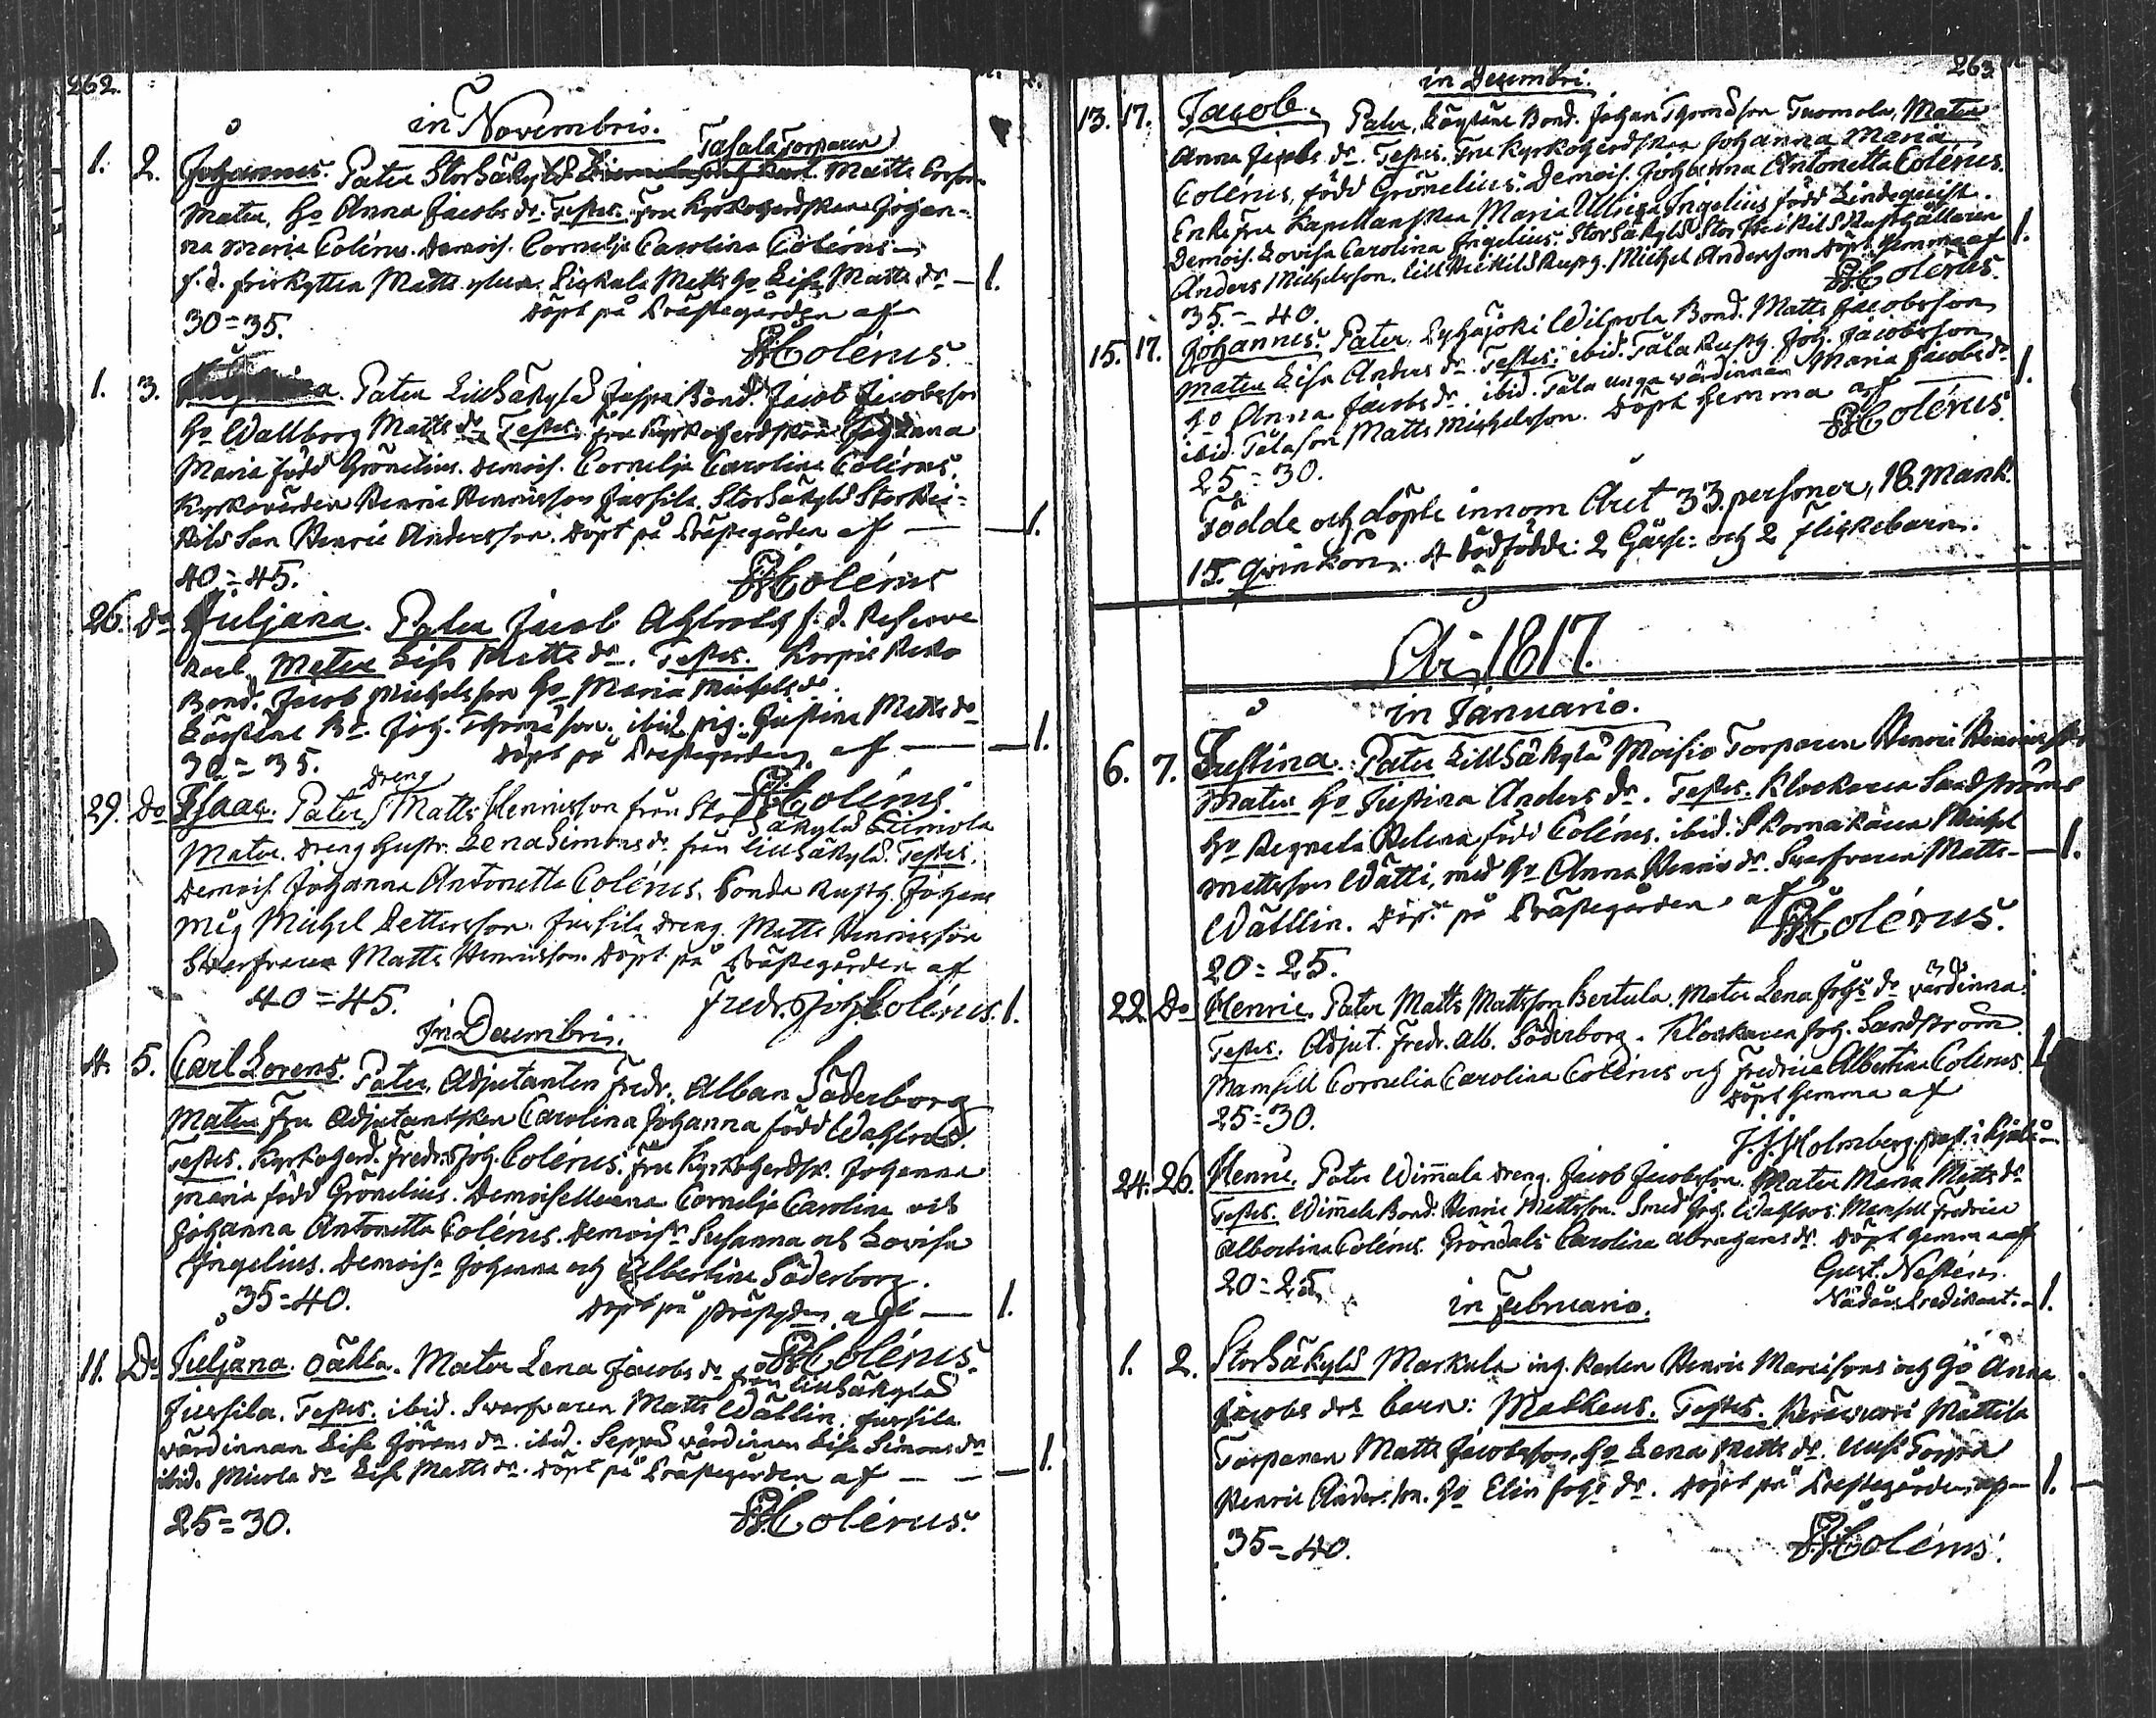 262.
in Novembris.
Tasala Torparen
1. 2. Johannes. Pater Storsäkylä Matts
Mater, Ho Anna Jacobs dr. Testes. Fru Kyrkoherdskan Johan-
na Maria Colérus. Demois. Cornelja Carolina Colérus
f.d. Matts Matts Ho Lisa Matts dr — 1.
30=35. Döpt på Prästegården af
Colérus.
1. 3. Pater Lillsäkylä Jussa Bond. Jacob Jacobsson
Ho Wallborg Matts dr Testes. Fru Kyrkoherdskan Johanna
Maria född Grönelius. Demois. Cornelja Carolina Colérus.
Kyrkovärden Henric Henricsson Jussila. Storsäkylä Storhei-
kilä Son Henric Andersson. Döpt på Prästegården af — 1.
40=45. Colérus
26. Do Juljana. Pater Jacob f.d. Reserve
Karl. Mater Lisa Matts dr. Testes. Korpi
Bond. Jacob Michelsson Ho Maria Michels dr.
Löystäne Bo. Joh. Thomasson. ibid. pig. Justina Matts dr
30=35. Döpt på Prestegården af — 1.
Colérus.
Dreng
29. Do Isaac. Pater Matts Henricsson från Stor Säkylä
Mater. Dreng Hustr. Lena Simons dr från Lillsäkylä. Testes.
Demois. Johanna Antonetta Colérus. Rusth. Johans
Måg Michel Jussila Dreng. Matts Henricsson
Swarfvaren Matts Henricsson. Döpt på Prästegården af
40=45. Fredr. Joh. Colérus. 1.
In Decembris.
4. 5. Carl Lorens. Pater, Adjutanten Fredr. Alban Söderborg
Mater Fru Adjutantskan Carolina Johanna född
Testes. Kyrkoherd. Fredr. Joh. Colérus. Fru Kyrkoherdsk. Johanna
Maria född Grönelius. Demoisellerna Cornelja Carolina och
Johanna Antonetta Colérus. Demois:r Susanna och Lovisa
Ingelius. Demois:r Johanna och Albertina Söderborg.
35=40. Döpt på af — 1.
Colérus.
11. Do Juljana. Oäkta. Mater Lena Jacobs dr från Lillsäkylä
Jussila. Testes. ibid. Swarfvaren Matts Wällin. Jussila
värdinnan Lisa Jörans dr. ibid. Seppä värdinnan Lisa Simons dr
ibid. Micola dr Lisa Matts dr. Döpt på Prästegården af — 1.
25=30. Colérus.
263
in Decembri.
13. 17. Jacob. Pater, Löystäne Bond. Johan Thomasson Tuomola, Mater
Anna Jacobs dr. Testes. Fru Kyrkoherdskan Johanna Maria
Colérus, född Grönelius. Demois. Johanna Antonetta Colérus.
Enke Fru Kapellanskan Maria Ulrica Ingelius född Lindequist.
Demois. Lovisa Carolina Ingelius. Storsäkylä Storheikilä Rusthållaren
Anders Michelsson. Lillheikilä Rustg. Michel Andersson Döpt hemma af 1.
35=40. Colérus.
15. 17. Johannes. Pater, Pyhäjoki Wilpola Bond. Matts Jacobsson
Mater Lisa Anders dr. Testes. ibid. Tåla Rustg. Joh. Jacobsson
Ho Anna Jacobs dr. ibid. Tåla unga värdinnan Maria Jacobs dr 1.
ibid. Tåla son Matts Michelsson. Döpt hemma af
25=30. Colérus.
Födde och döpte innom Året 33. personer, 18. Mank.
15. Qvinkön. 4 Dödfödde: 2 Gåsse- och 2 Flickebarn.
Ao 1817.
in Januario.
6. 7. Justina. Pater Lillsäkylä Moisio Torparen Henric
Mater Ho Justina Anders dr. Testes. Klockaren Sandströms
Ho Regnela Helena född Colérus. ibid. Skomakaren Michel
Mattsson Wätti, med Ho Anna Henrics dr. Swarfvaren Matts — 1.
Wällin. Döpt på Prästegården af
20=25. Colérus.
22. Do Henric. Pater Matts Mattsson Bertula. Mater Lena Joh:s dr värdinna.
Testes. Adjut. Fredr. Alb. Söderborg. Klockaren Joh. Sandström.
Mamsell Cornelia Carolina Colérus och Fredrica Albertina Colérus. 1
25=30. Döpt hemma af
J. J. Holmberg past. i Kjulo
24. 26. Henric. Pater Wim̄ala Dreng. Jacob Jacobsson. Mater Maria Matts dr
Testes. Wim̄ala Bond. Henric Mattsson. Smed Joh. Mamsell Fredrica
Albertina Colérus. Gröndals Carolina Abrahams dr. Döpt hemma af
20=25. Gust.
Nådårs Predikant. — 1.
in Februario.
1. 2. Storsäkylä Markula ing. Karlen Henric och Ho Anna
Jacobs drs barn: Matheus. Testes. Mattila
Torparen Matts Jacobsson, Ho Lena Matts dr.
Henric Andersson. Ho Elin Joh:s dr. Döpt på Prestegården af — 1.
35=40. Colérus.